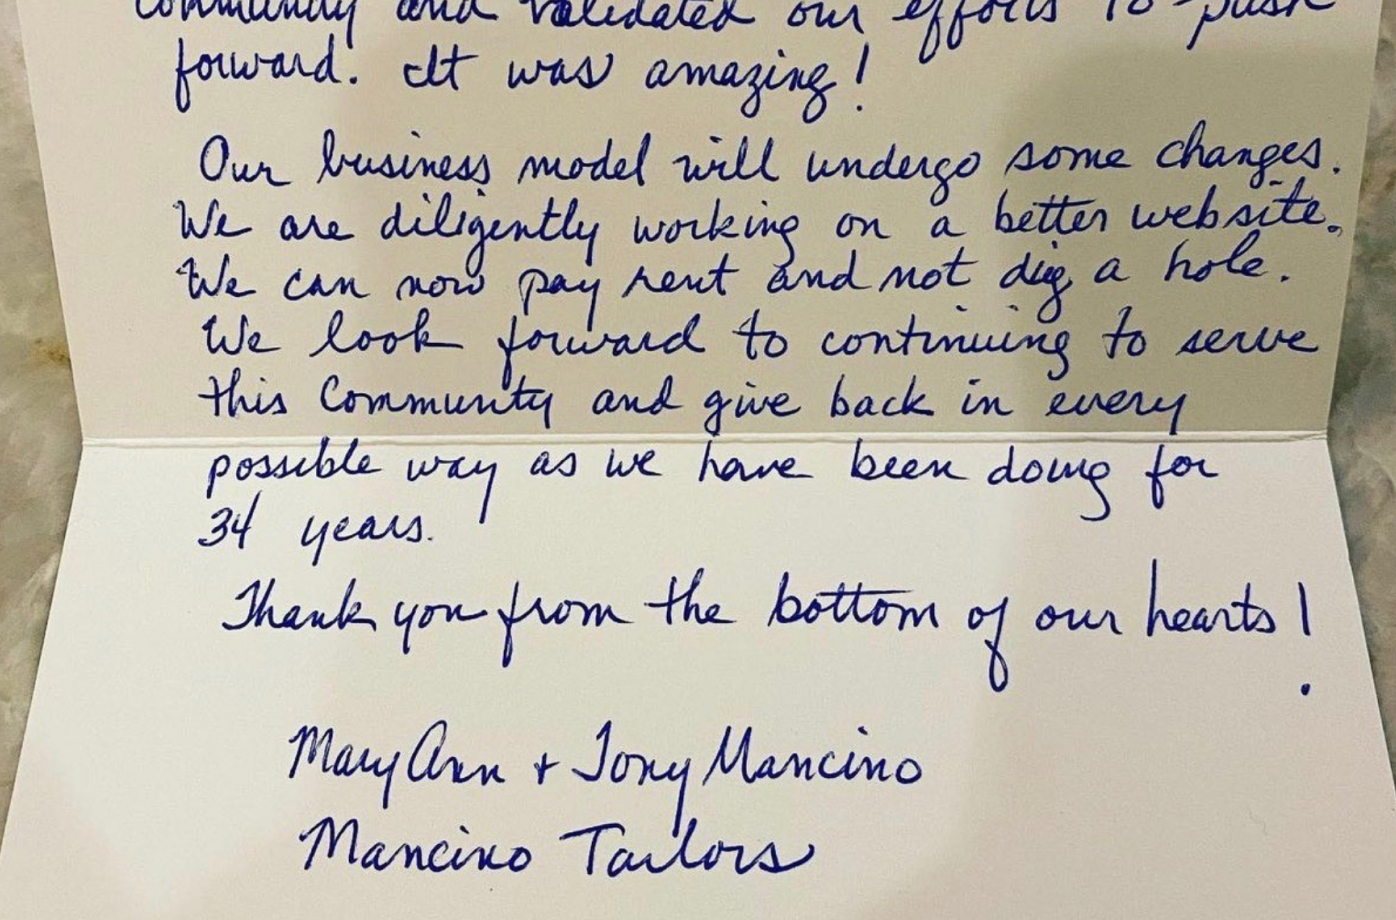 community and validated our efforts to push
forward. It was amazing!
Our business model will undergo some changes.
We are diligently working on a better website.
We can now pay rent and not dig a hole.
We look forward to continuing to serve
this Community and give back in every
possible way as we have been doing for
34 years.
Thank you from the bottom of our hearts!
Mary Ann + Tony Mancino
Mancino Tailors